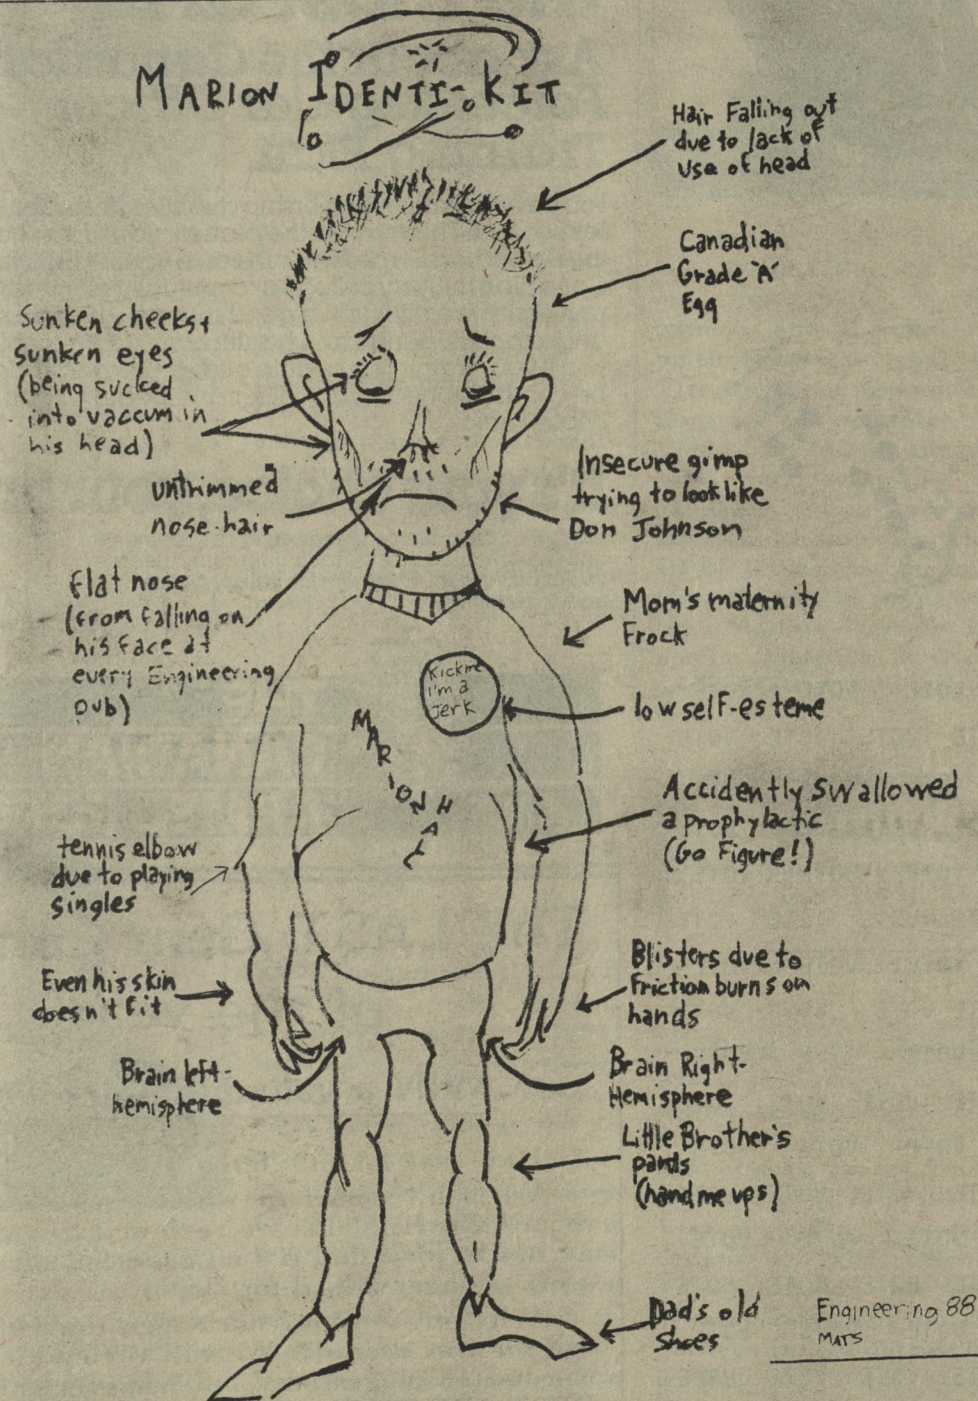 MARION IDENTI-KIT
Hair Falling out
due to lack of
use of head
Canadian
Grade 'A'
Egg
Sunken cheeks+
sunken eyes
(being sucked
into vaccum in
his head)
untrimmed
nose-hair
Insecure gimp
trying to look like
Don Johnson
flat nose
(from falling on
his face at
every Engineering
pub)
Mom's maternity
Frock
Kick me
I'm a
Jerk
low self-esteme
MARION HAY
Accidently swallowed
a prophylactic
(Go Figure!)
tennis elbow
due to playing
singles
Even his skin
doesn't fit
Blisters due to
friction burns on
hands
Brain left-
hemisphere
Brain Right-
Hemisphere
Little Brother's
pants
(hand me ups)
Dad's old
shoes
Engineering 88
MATS